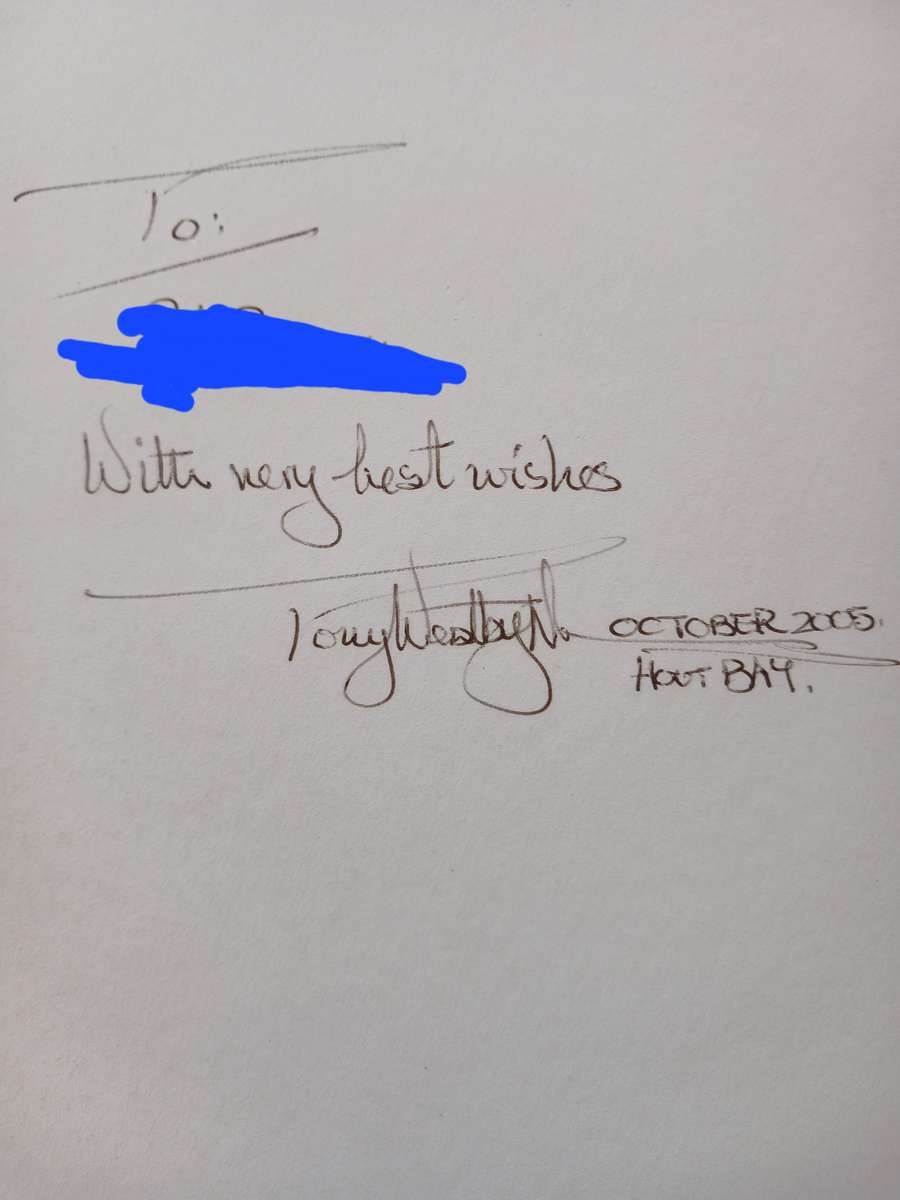 To:
With very best wishes
Tony Westby OCTOBER 2005.
HOUT BAY.